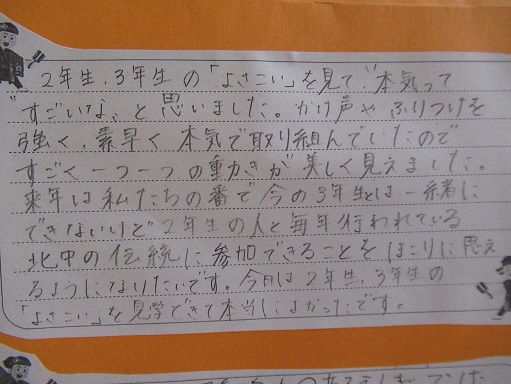 2年生、3年生の「よさこい」を見て、"本気って
"すごいな、と思いました。かけ声やふりつけを
強く、素早く本気で取り組んでいたので
すごく一つ一つの動きが美しく見えました。
来年は私たちの番で今の3年生とは一緒に
できないけど2年生の人と毎年行われている
北中の伝統に参加できることをほこりに思え
るようになりたいです。今日は2年生、3年生の
「よさこい」を見学できて本当によかったです。